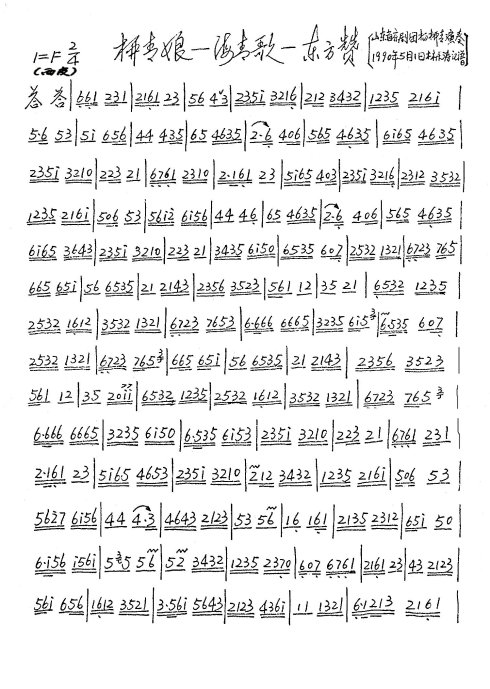 1=F 2/4 柳青娘—海青歌—东方赞 山东省吕剧团 柳青演奏
(西皮) 1990年5月1日 记谱
661 231 | 2161 23 | 56 43 | 235i 3216 | 212 3432 | 1235 216i |
5·6 53 | 5i 656 | 44 435 | 65 4635 | 2·6 406 | 565 4635 | 6i65 4635 |
235i 3210 | 223 21 | 6761 2310 | 2·161 23 | 5i65 403 | 235i 3216 | 2312 3532 |
1235 216i | 506 53 | 56i2 6i56 | 44 46 | 65 4635 | 2·6 406 | 565 4635 |
6i65 3643 | 235i 3210 | 223 21 | 3435 6i50 | 6535 607 | 2532 1321 | 6723 765 |
665 65i | 56 6535 | 21 2143 | 2356 3523 | 561 12 | 35 21 | 6532 1235 |
2532 1612 | 3532 1321 | 6723 7653 | 6·666 6665 | 3235 6i5 | 6·535 607 |
2532 1321 | 6723 765 | 665 65i | 56 6535 | 21 2143 | 2356 3523 |
561 12 | 35 20ii | 6532 1235 | 2532 1612 | 3532 1321 | 6723 765 |
6·666 6665 | 3235 6i50 | 6·535 6i53 | 235i 3210 | 223 21 | 6761 231 |
2·161 23 | 5i65 4653 | 235i 3210 | 212 3432 | 1235 216i | 506 53 |
5627 6i56 | 44 4·3 | 4643 2123 | 53 56 | 16 161 | 2135 2312 | 65i 50 |
6·i56 i56i | 5 5 56 | 52 3432 | 1235 2370 | 607 6761 | 2161 23 | 43 2123 |
56i 656 | 1612 3521 | 3·56i 5643 | 2123 436i | 11 1321 | 6·1213 2161 |